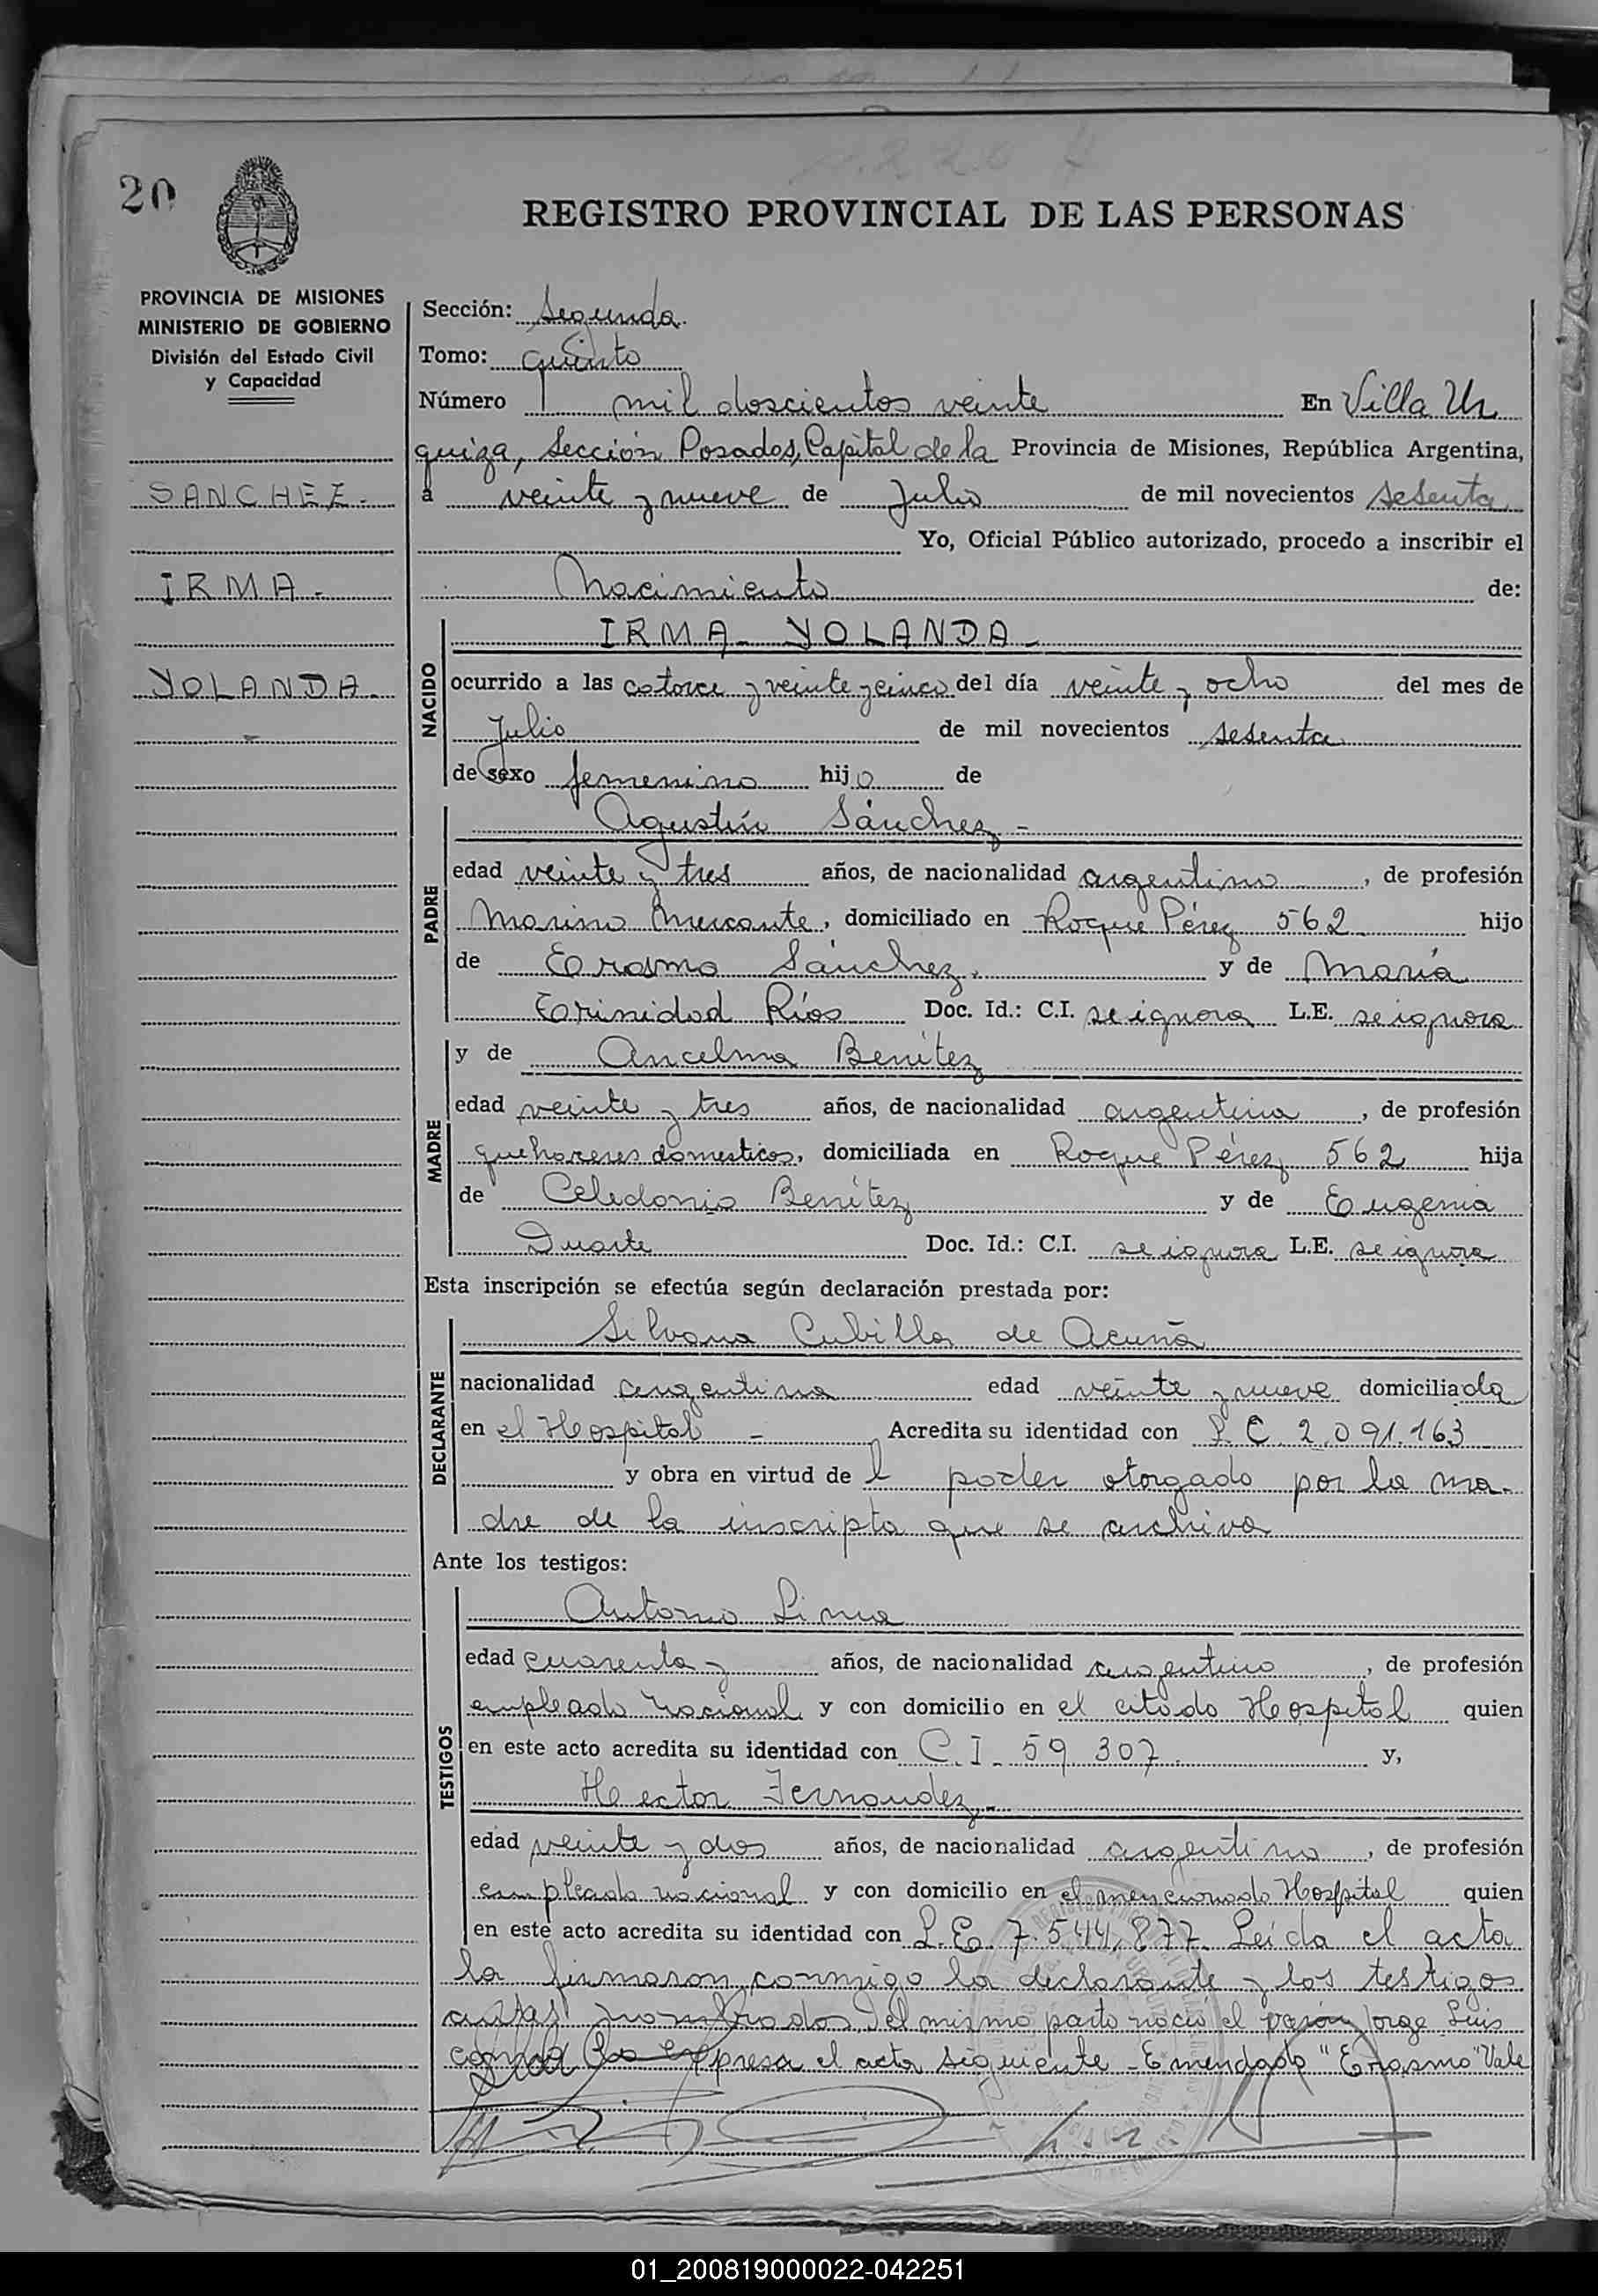 20
REGISTRO PROVINCIAL DE LAS PERSONAS
PROVINCIA DE MISIONES
MINISTERIO DE GOBIERNO
División del Estado Civil
y Capacidad
SANCHEZ.-
IRMA -
YOLANDA -
Sección: Segunda
Tomo: quinto
Número mil doscientos veinte En Villa Ur
quiza, Sección Posadas, Capital de la Provincia de Misiones, República Argentina,
a veinte y nueve de Julio de mil novecientos sesenta
Yo, Oficial Público autorizado, procedo a inscribir el
Nacimiento de:
NACIDO
IRMA - YOLANDA -
ocurrido a las catorce y veinte y cinco del día veinte y ocho del mes de
Julio de mil novecientos sesenta
de sexo femenino hija de
PADRE
Agustín Sánchez -
edad veinte y tres años, de nacionalidad argentino, de profesión
Marino Mercante, domiciliado en Roque Pérez 562 hijo
de Erasmo Sánchez, y de María
Trinidad Ríos Doc. Id.: C.I. se ignora L.E. se ignora
MADRE
y de Ancelma Benítez
edad veinte y tres años, de nacionalidad argentina, de profesión
quehaceres domesticos, domiciliada en Roque Pérez 562 hija
de Celedonio Benítez y de Eugenia
Duarte Doc. Id.: C.I. se ignora L.E. se ignora
Esta inscripción se efectúa según declaración prestada por:
DECLARANTE
Silvana Cubilla de Acuña
nacionalidad argentina edad veinte y nueve domiciliada
en el Hospital - Acredita su identidad con L.C. 2.091.163
y obra en virtud de l poder otorgado por la ma-
dre de la inscripta que se archiva
Ante los testigos:
TESTIGOS
Antonio Lima
edad cuarenta y años, de nacionalidad argentino, de profesión
empleado nacional y con domicilio en el citado Hospital quien
en este acto acredita su identidad con C.I. 59.307. y,
Hector Fernandez.-
edad veinte y dos años, de nacionalidad argentino, de profesión
empleado nacional y con domicilio en el mencionado Hospital quien
en este acto acredita su identidad con L.E. 7.544.877. Leída el acta
la firmaron conmigo la declarante y los testigos
antes nombrados. Del mismo parto nació el varón Jorge Luis
como lo expresa el acta siguiente - Emendado "Erasmo" Vale
01_200819000022-042251